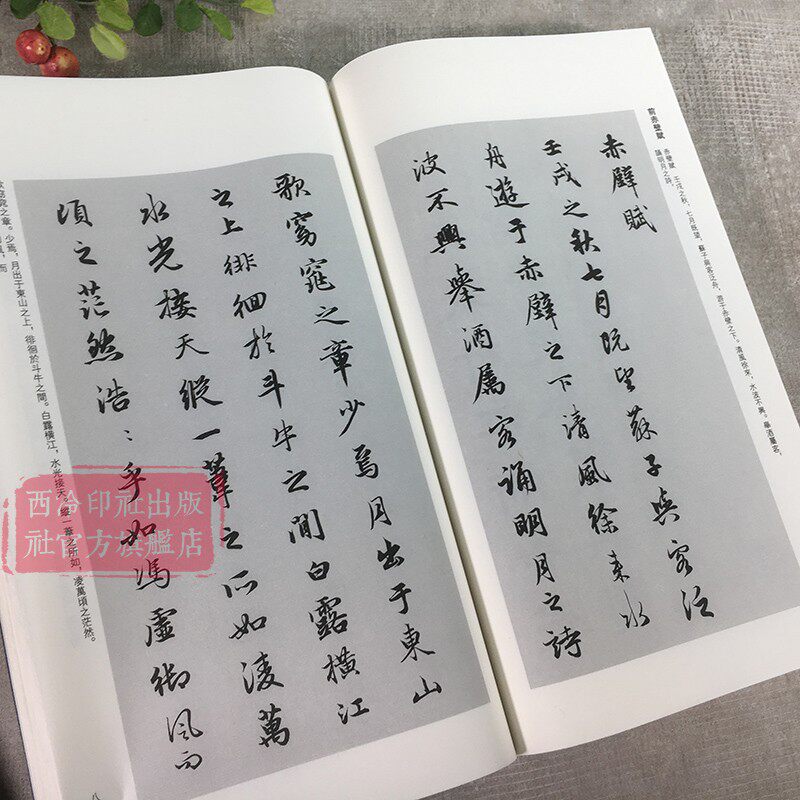 前赤壁賦
赤壁賦 壬戌之秋，七月既望，蘇子與客泛舟，游于赤壁之下。清風徐來，水波不興。舉酒屬客，
誦明月之詩，
赤壁賦
壬戌之秋七月既望蘇子與客泛
舟遊于赤壁之下清風徐来水
波不興舉酒属客誦明月之詩
歌窈窕之章少焉月出于東山
之上徘徊於斗牛之間白露橫江
水光接天縱一葦之所如凌萬
頃之茫然浩〻乎如馮虛御風而
窈窕之章。少焉，月出于東山之上，徘徊於斗牛之間。白露橫江，水光接天。縱一葦之所如，凌萬頃之茫然。
風，而
西泠印社出版
社官方旗艦店
八